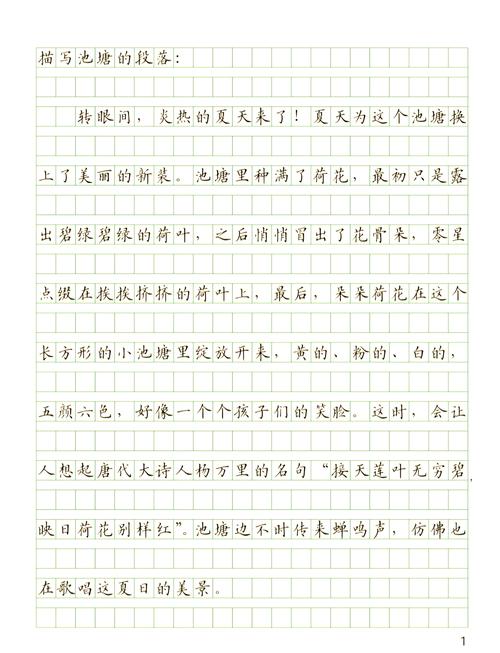 描写池塘的段落：
转眼间，炎热的夏天来了！夏天为这个池塘换
上了美丽的新装。池塘里种满了荷花，最初只是露
出碧绿碧绿的荷叶，之后悄悄冒出了花骨朵，零星
点缀在挨挨挤挤的荷叶上，最后，朵朵荷花在这个
长方形的小池塘里绽放开来，黄的、粉的、白的，
五颜六色，好像一个个孩子们的笑脸。这时，会让
人想起唐代大诗人杨万里的名句“接天莲叶无穷碧，
映日荷花别样红”。池塘边不时传来蝉鸣声，仿佛也
在歌唱这夏日的美景。
1